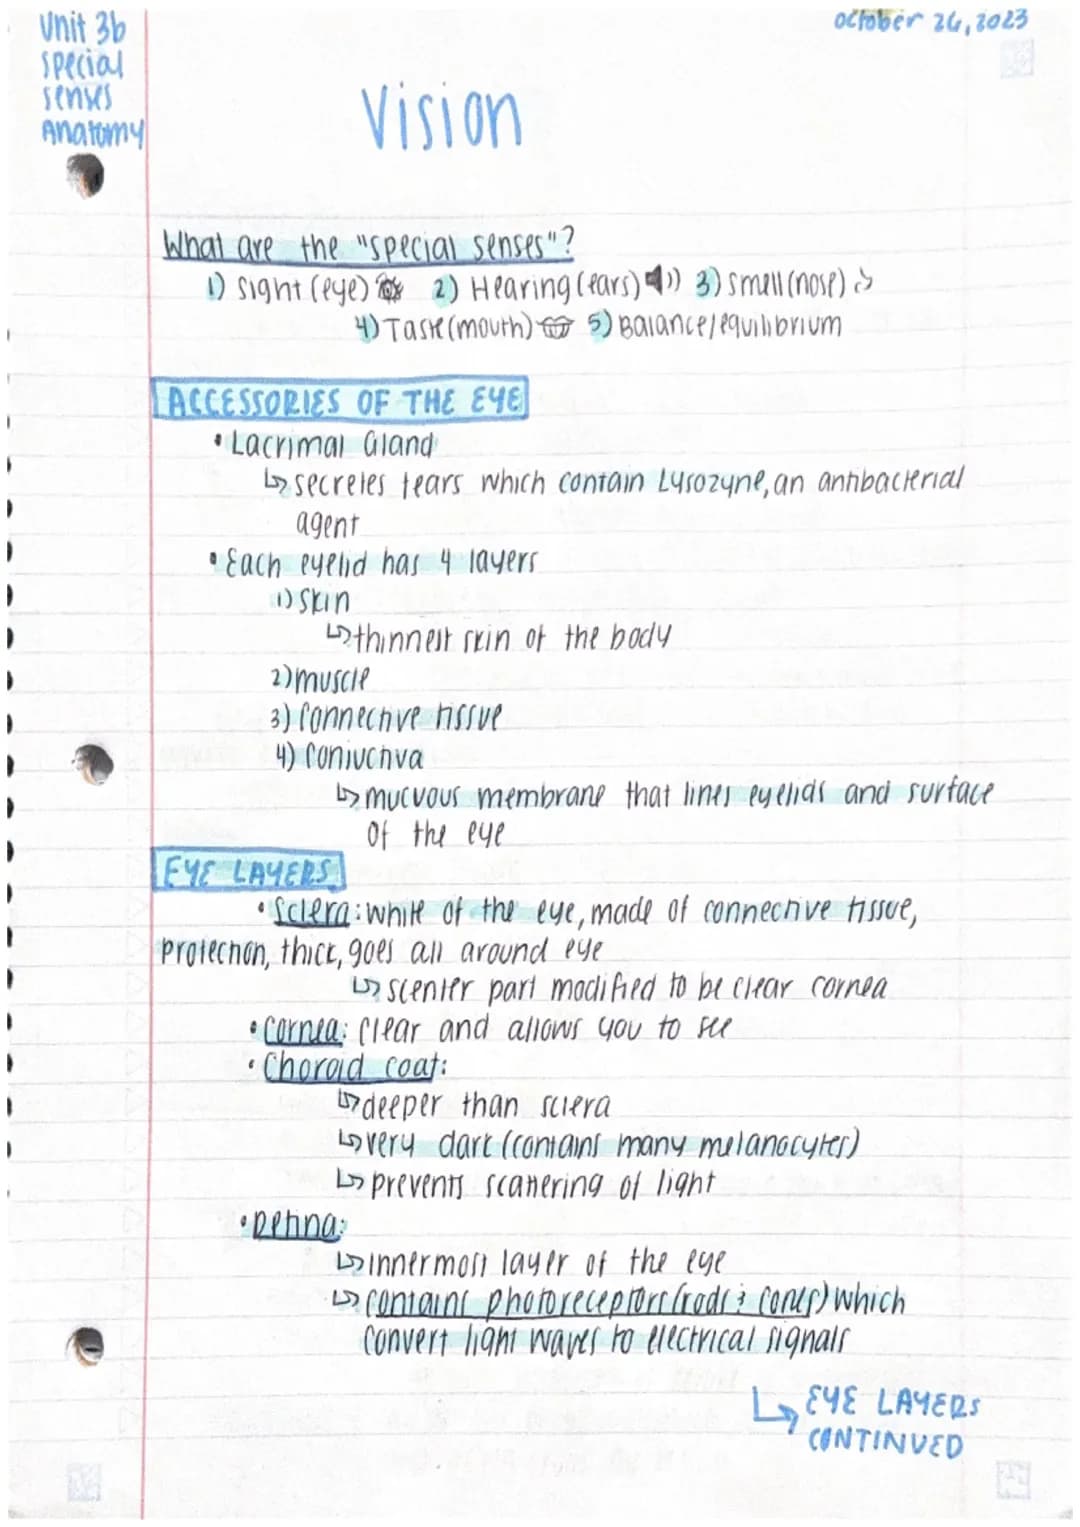 Unit 3b
special
senses
Anatomy
october 26, 2023
Vision
What are the "special senses"?
1) Sight (eye) 2) Hearing (ears) 3) Smell (nose)
4) Taste (mouth) 5) Balance/equilibrium
ACCESSORIES OF THE EYE
• Lacrimal Gland
↳ secretes tears which contain Lysozyne, an antibacterial
agent
• Each eyelid has 4 layers
1) Skin
↳ thinnest skin of the body
2) muscle
3) connective tissue
4) conjuctiva
↳ mucuous membrane that lines eyelids and surface
of the eye
EYE LAYERS
• Sclera: white of the eye, made of connective tissue,
protection, thick, goes all around eye
↳ scenter part modified to be clear cornea
• Cornea: clear and allows you to see
• Choroid coat:
↳ deeper than sclera
↳ very dark (contains many melanocytes)
↳ prevents scattering of light
• Retina:
↳ innermost layer of the eye
↳ contains photoreceptors (rods & cones) which
convert light waves to electrical signals
↳ EYE LAYERS
CONTINUED